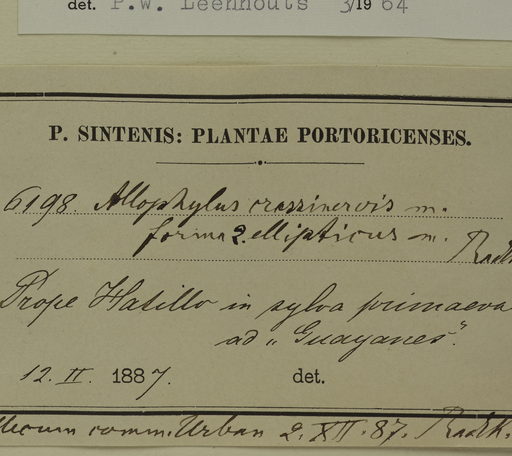 det. P.W. Leenhouts 3/1964
P. SINTENIS: PLANTAE PORTORICENSES.
6198. Allophylus crassinervis m.
forma 2. ellipticus m. Radlk
Prope Hatillo in sylva primaeva
ad „Guayanes“.
12. II. 1887. det.
Mecum comm. Urban 2. XII. 87. Radlk.